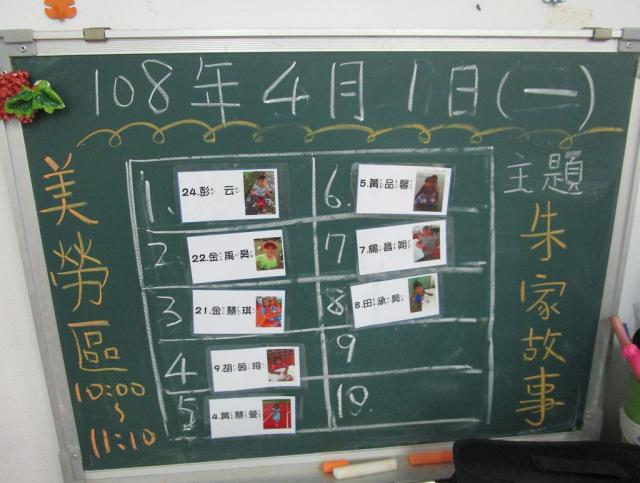 108年4月1日(一)
美勞區
10:00
~
11:10
主題
朱家故事
1. 24.彭云
2. 22.金禹昊
3 21.金慧琪
4 9.胡茵琦
5 4.黃慧螢
6. 5.黃品馨
7 7.楊昌朔
8 8.田承昊
9
10.